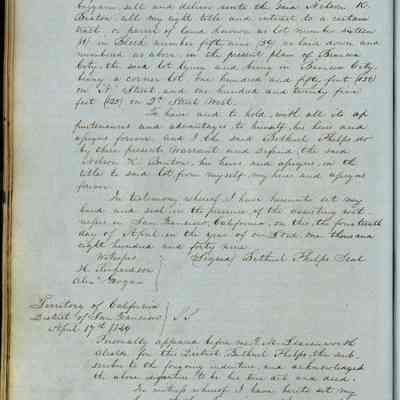 bargain sell and deliver unto the said Nelson K.
all my right title and interest to a certain
tract, or parcel of land known as lot number sixteen
(16) in Block number fifty nine (59) as laid down and
numbered as above in the present plan of Benicia
City, the said lot lying and being in Benicia City
being a corner lot One hundred and fifty feet (150)
on N. Street, and one hundred and twenty five
feet (125) on 2d Street West.
To have and to hold, with all its ap
purtenances and advantages, to himself, his heirs and
assigns forever. And I the said Bethuel Phelps do
by these presents Warrant and Defend, the said
Nelson K. his heirs and assigns, in the
title to said lot from myself, my heirs and assigns
forever
In testimony whereof, I have hereunto set my
hand and seal in the presence of the assisting wit-
nesses in San Francisco, California, on this the fourteenth
day of April, in the year of our Lord, One thousand
eight hundred and forty nine
Witnesses Signed Bethuel Phelps Seal
H.
Alex Grogan
Territory of California
District of San Francisco SS.
April 17th 1849
Personally appeared before me T. M. Leavenworth
Alcalde for this District Bethuel Phelps, the sub
scriber to the foregoing indenture, and acknowledged
the above signature to be his own act and deed.
In witness whereof I have hereto set my